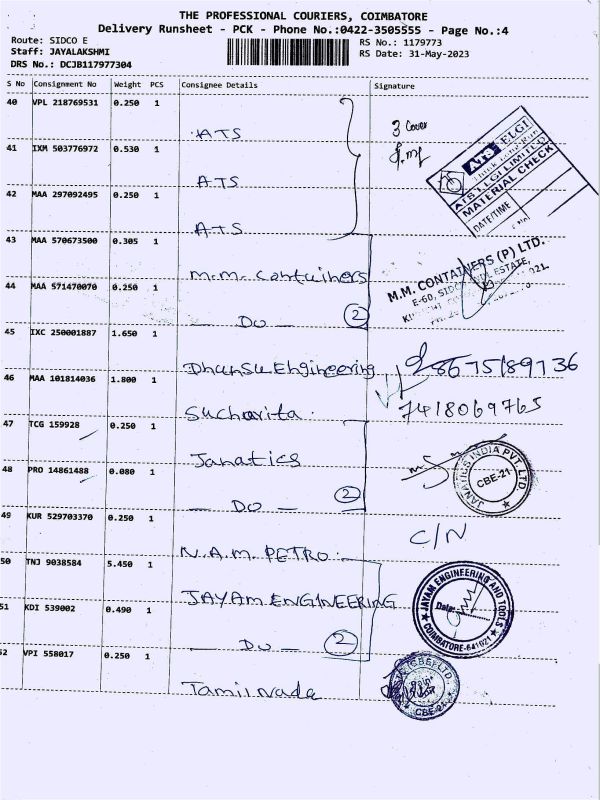 THE PROFESSIONAL COURIERS, COIMBATORE
Delivery Runsheet - PCK - Phone No.:0422-3505555 - Page No.:4
Route: SIDCO E
RS No.: 1179773
Staff: JAYALAKSHMI
RS Date: 31-May-2023
DRS No.: DCJB117977304
S No Consignment No Weight PCS Consignee Details Signature
40 VPL 218769531 0.250 1
ATS
3 Cover
41 IXM 503776972 0.530 1
ATS
42 MAA 297092495 0.250 1
ATS
ATS ELGI
ATS ELGI LIMITED
MATERIAL CHECK
DATE/TIME
43 MAA 570673500 0.305 1
M.M. Containers
M.M. CONTAINERS (P) LTD.
E-60, SIDCO ESTATE,
44 MAA 571470070 0.250 1
- DO - 2
45 IXC 250001887 1.650 1
Dhansu Engineering
8675189736
46 MAA 101814036 1.800 1
Sucharita.
7418069765
47 TCG 159928 0.250 1
Janatics
JANATICS INDIA PVT. LTD.
CBE-21
48 PRO 14861488 0.080 1
- DO - 2
49 KUR 529703370 0.250 1
N.A.M. PETRO.
C/N
50 TNJ 9038584 5.450 1
JAYAM ENGINEERING
JAYAM ENGINEERING AND TOOLS
Date:
COIMBATORE-641021
51 KDI 539002 0.490 1
- DO - 2
52 VPI 558017 0.250 1
Tamilnadu
CBE-21